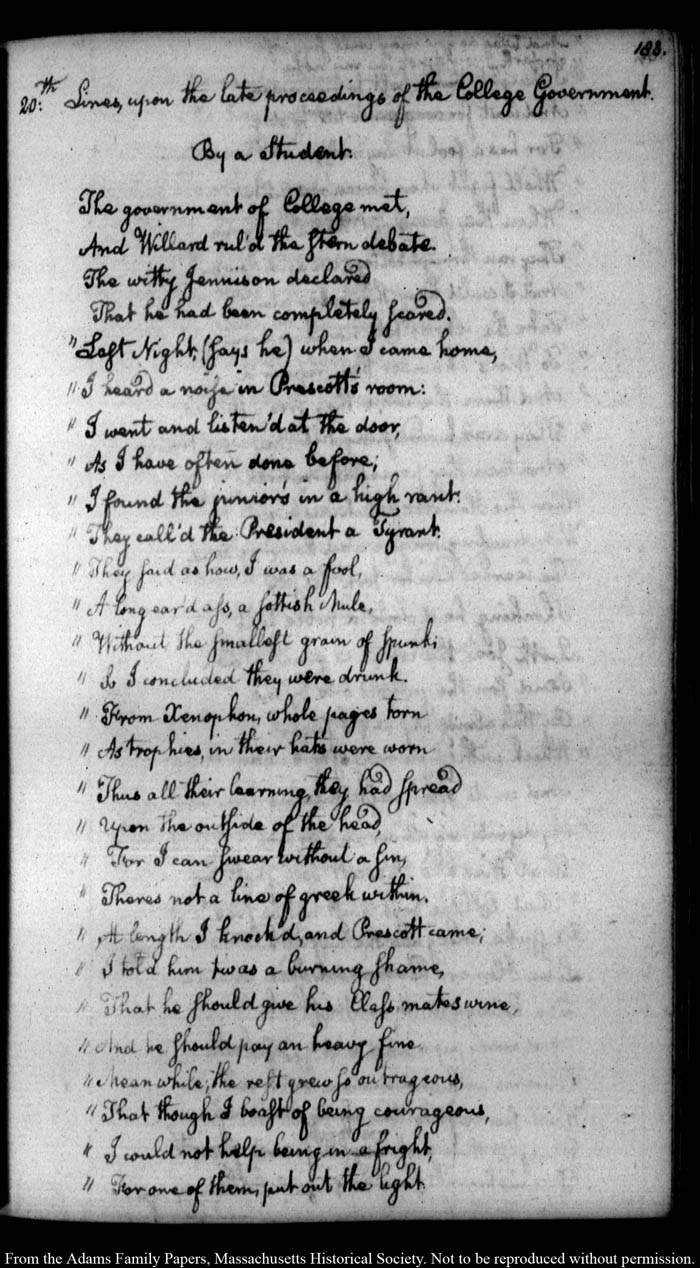 183.
20.th Lines, upon the late proceedings of the College Government.
By a Student.
The government of College met,
And Willard rul'd the stern debate.
The witty Jennison declared
That he had been completely scared.
"Last Night, (says he) when I came home,
"I heard a noise in Prescott's room:
"I went and listen'd at the door,
"As I have often done before;
"I found the junior's in a high rant.
"They call'd the President a Tyrant.
"They said as how, I was a fool,
"A long ear'd ass, a sottish Mule,
"Without the smallest grain of spunk;
"So I concluded they were drunk.
"From Xenophon, whole pages torn
"As trophies, in their hats were worn
"Thus all their learning they had spread
"Upon the outside of the head,
"For I can swear without a sin,
"There's not a line of greek within.
"At length I knock'd, and Prescott came;
"I told him twas a burning shame,
"That he should give his Class mates wine,
"And he should pay an heavy fine
"Meanwhile; the rest grew so outrageous,
"That though I boast of being courageous,
"I could not help being in a fright,
"For one of them, put out the light.
From the Adams Family Papers, Massachusetts Historical Society. Not to be reproduced without permission.